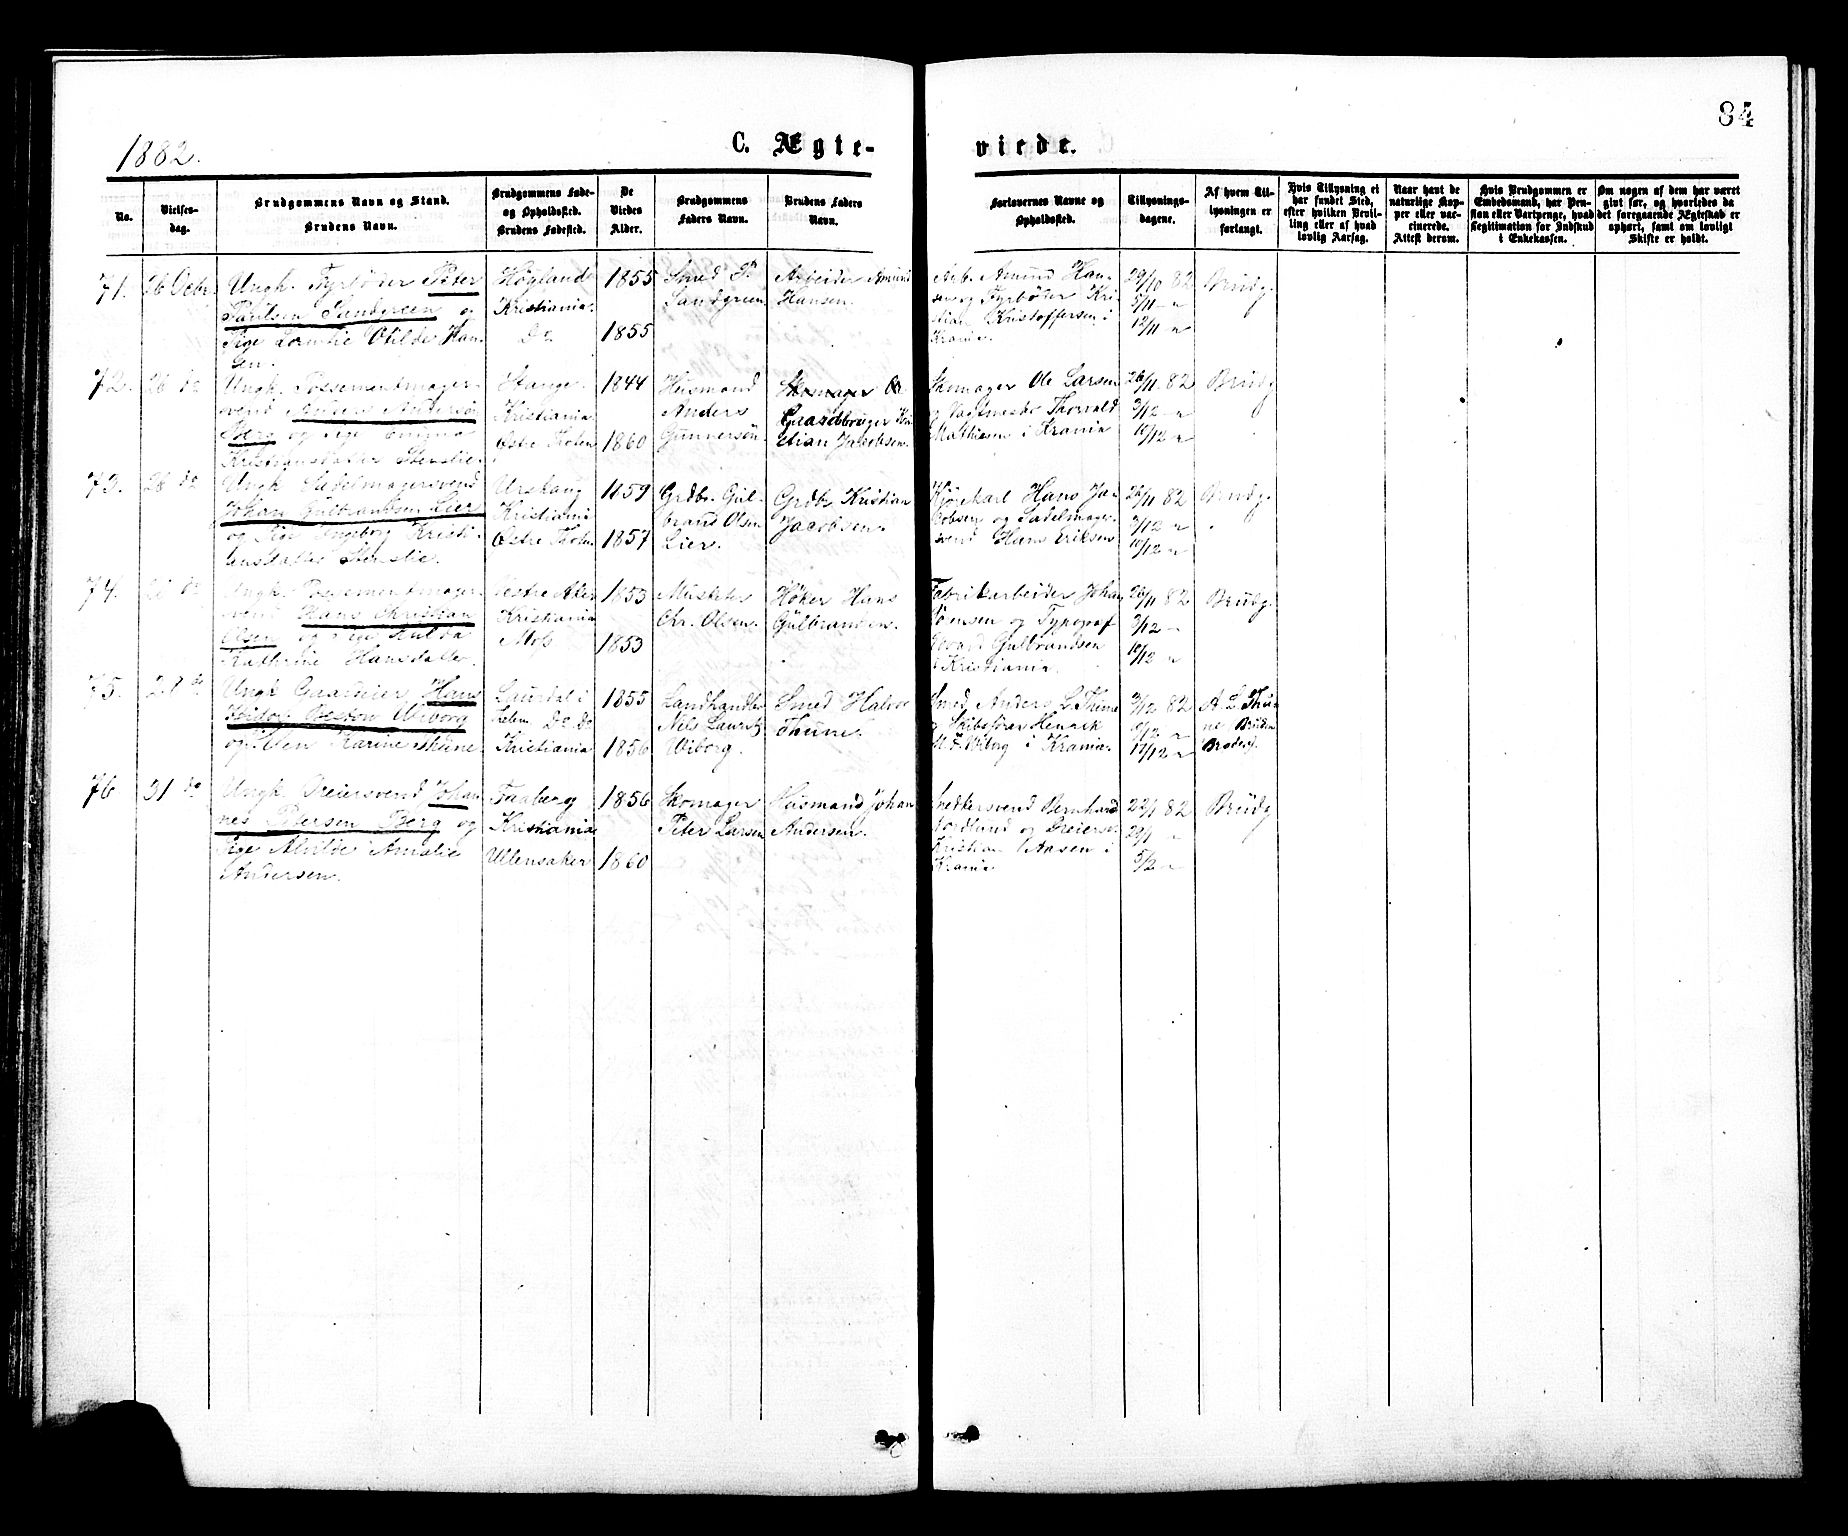 84
1882.
C. Ægte-
viede.
No.
Vielses-
dag.
Brudgommens Navn og Stand.
Brudens Navn.
Brudgommens Føde-
og Opholdssted.
Brudens Fødested.
De
Viedes
Alder.
Brudgommens
Faders Navn.
Brudens Faders
Navn.
Forlovernes Navne og
Opholdssted.
Tillysnings-
dagene.
Af hvem Til-
lysningen er
forlangt.
Hvis Tillysning ei
har fundet Sted,
efter hvilken Bevil-
ling eller af hvad
lovlig Aarsag.
Naar havt de
naturlige Kop-
per eller vac-
cinerede.
Attest derom.
Hvis Brudgommen er
Embedsmand, har Pen-
sion eller Vartpenge, hvad
Legitimation for Indskud
i Enkekassen.
Om nogen af dem har været
givt før, og hvorledes da
det foregaaende Ægteskab er
ophørt, samt om lovligt
Skifte er holdt.
71.
26 Decbr.
Ungk. Fyrbøder Peter
Paulsen Sandgreen og
Pige Otilde Han-
sen.
Kristiania.
Do
1855
1855
Smed P.
Sandgreen
Arbeider Amund
Hansen.
Arb. Amund Han-
sen og Fyrbøder Kri
stian Kristoffersen i
Krania.
29/10 82
5/11 "
12/11 "
Brudg.
72.
26 do
Ungk. Possementmager-
svend Anders Andersen
Berg og Pige
Kristiansdatter Stenslie.
Stange.
Kristiania
Østre Thoten
1844
1860
Husmand
Anders
Gunnersen
Gaardbruger Kri
stian Jacobsen.
Skomager Ole Larsen
og Thorvald
Mathisen i Krania
26/11 82
3/12 "
10/12 "
Brudg
73.
28 do
Ungk. Sadelmagersvend
Johan Gulbrandsen Lier
og Pige Ingeborg Kristi-
ansdatter Stenslie.
Urskoug
Kristiania
Østre Thoten
1859
1857
Grdbr. Gul-
brand Olsen
Lier.
Grdbr Kristian
Jacobsen.
Kjørekarl Hans Ja-
cobsen og Sadelmager-
svend Hans Eriksen
26/11 82
3/12 "
10/12 "
Brudg.
74.
do
Ungk. Possementmager-
svend Hans Christian
Olsen og Pige Hulda
Kathrine Hansdatter.
Vestre Aker
Kristiania
Moss
1853
1853
Chr. Olsen.
Høker Hans
Gulbrandsen.
Fabrikarbeider Johan
og Typograf
Gulbrandsen
i Kristiania.
26/11 82
3/12 "
10/12 "
Brudg.
75.
28 do
Ungk. Hans
Wiborg
og Karine Thune.
Laurdal i
Do Do
Kristiania
1855
1856
Landhandler
Nils Lauritz
Wiborg.
Smed Halvor
Thune.
Smed Anders L. Thune
og Skibsfører Henrik
Wiborg i Krania.
3/12 82
10/12 "
17/12 "
A. L. Thu-
ne Brudens
Broder.
76
31 do
Ungk Dreiersvend Johan
nes Petersen Berg og
Pige Alvilde Amalie
Andersen.
Faaberg
Kristiania
Ullensaker
1856
1860
Skomager
Peter Larsen
Husmand Johan
Andersen.
Snedkersvend Bernhard
Nordlund og Dreiersv
Kristian Aasen i
Krania
22/1 82
29/1 "
5/2 "
Brudg